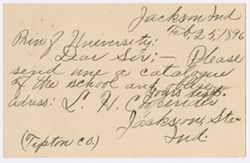 Jackson Ind
Feb. 25, 1896
Prin. University:
Dear Sir; — Please
send me a catalogue
of the school and
adress: L. H. Carpenter
Jackson, Sta
Ind.
(Tipton Co.)